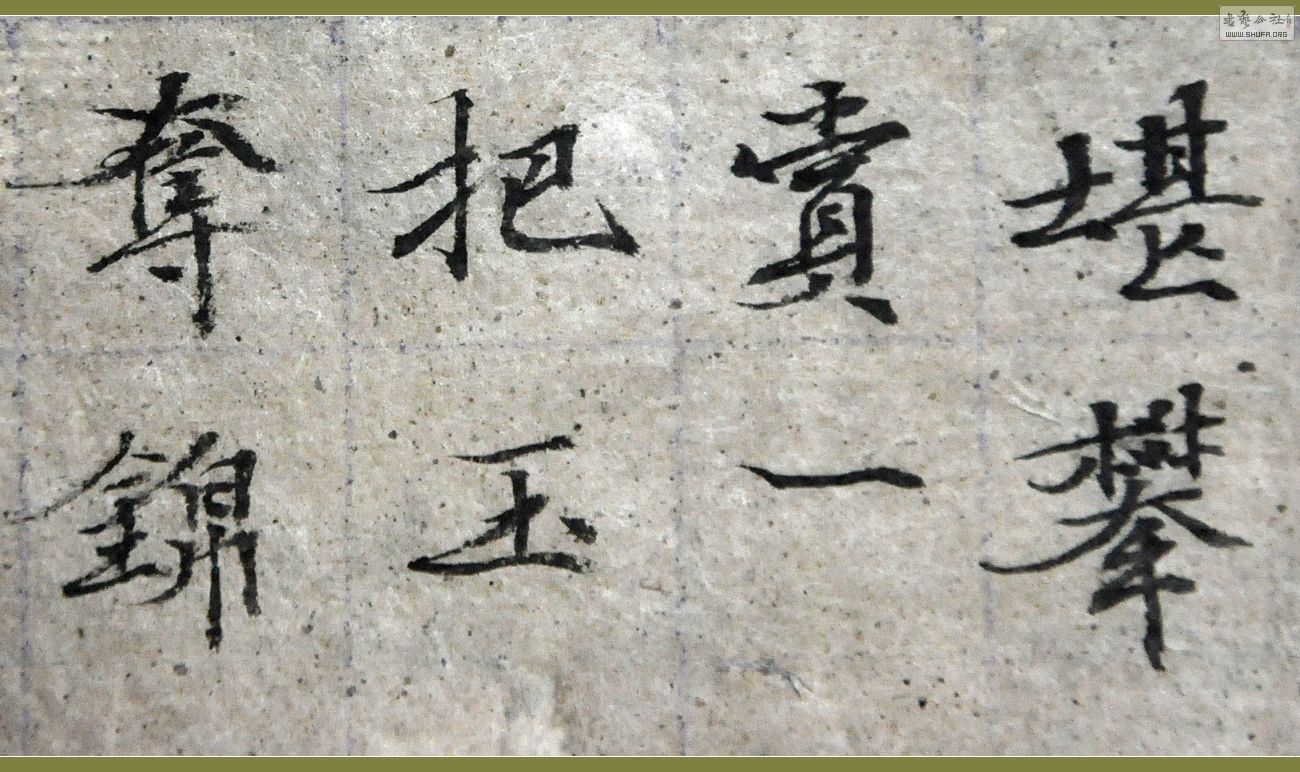 堪攀
賞一
把玉
奪錦
書藝公社
WWW.SHUFA.ORG